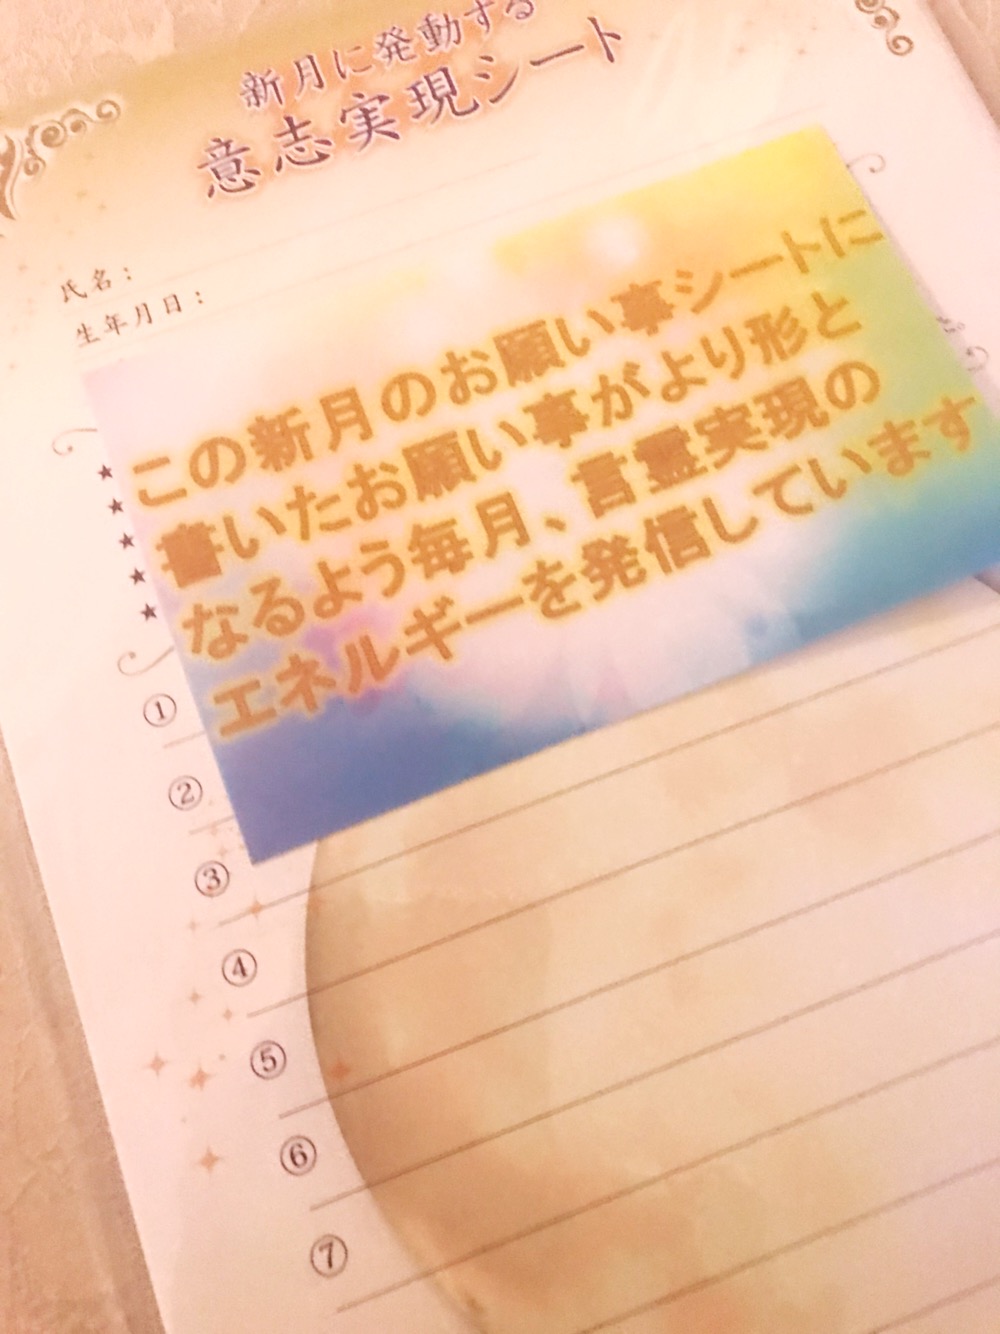 新月に発動する
意志実現シート
氏名：
生年月日：
この新月のお願い事シートに
書いたお願い事がより形と
なるよう毎月、言霊実現の
エネルギーを発信しています
★
★
★
★
★
①
②
③
④
⑤
⑥
⑦